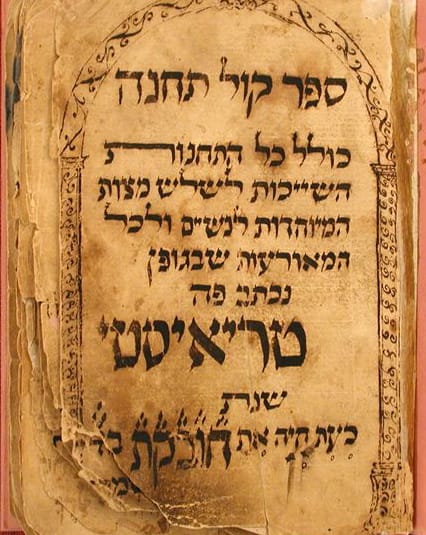 ספר קול תחנה
כולל כל התחנות
השייכות לשלש מצות
המיוחדות לנשים ולכל
המאורעות שבגופן
נכתב פה
טריאיסטי
שנת
כעת חיה את חובקת